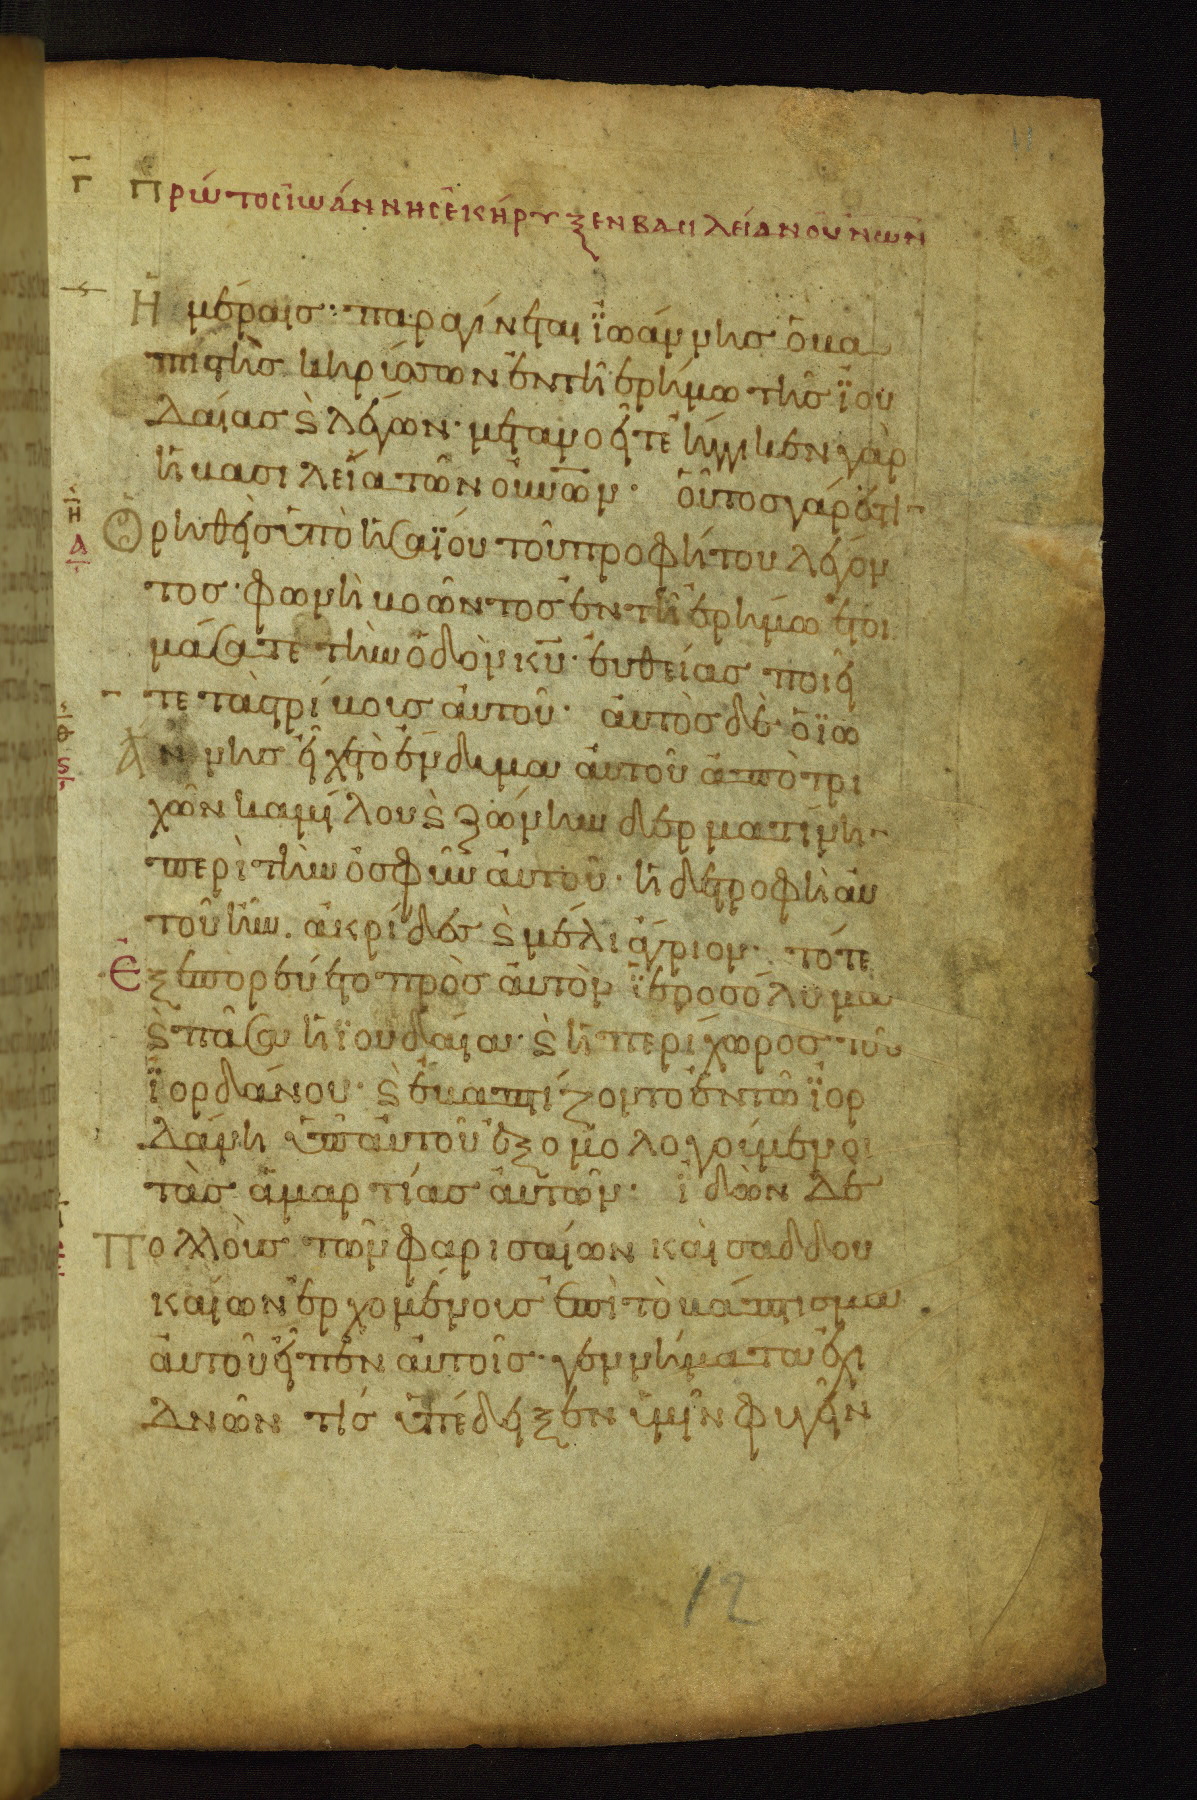 Γ Πρώτος ἰωάννης ἐκήρυξεν βασιλείαν οὐνῶν
Ἡμέραις· παραγίνεται ἰωάννης ὁ βα
πτιστὴς κηρύσσων ἐν τῆ ἐρήμω τῆς ἰου
δαίας ϗ λέγων· μετανοεῖτε ἤγγικεν γὰρ
ἡ βασιλεία τῶν οὐνῶν· οὗτος γάρ ἐστι
Ὁ ρηθεὶς ὑπὸ ἡσαΐου τοῦ προφήτου λέγον
τος· φωνὴ βοῶντος ἐν τῆ ἐρήμω ἑτοι
μάσατε τὴν ὁδὸν κυ· εὐθείας ποιεῖ
τε τὰς τρίβους αὐτοῦ· αὐτὸς δὲ ὁ ἰω
Άννης εἶχε τὸ ἔνδυμα αὐτοῦ ἀπὸ τρι
χῶν καμήλου ϗ ζώνην δερματίνη
περὶ τὴν ὀσφὺν αὐτοῦ· ἡ δὲ τροφὴ αὐ
τοῦ ἦν ἀκρίδες ϗ μέλι ἄγριον· τότε
Ἐξεπορεύετο πρὸς αὐτὸν ἱεροσόλυμα
ϗ πᾶσα ἡ ἰουδαία· ϗ ἡ περίχωρος τοῦ
ἰορδάνου· ϗ ἐβαπτίζοντο ἐν τῶ ἰορ
δάνη ὑπ' αὐτοῦ ἐξομολογούμενοι
τὰς ἁμαρτίας αὐτῶν· ἰδὼν δὲ
Πολλοὺς τῶν φαρισαίων καὶ σαδδου
καίων ἐρχομένους ἐπὶ τὸ βάπτισμα
αὐτοῦ εἶπεν αὐτοῖς· γεννήματα ἐχι
δνῶν τίς ὑπέδειξεν ὑμῖν φυγεῖν
12